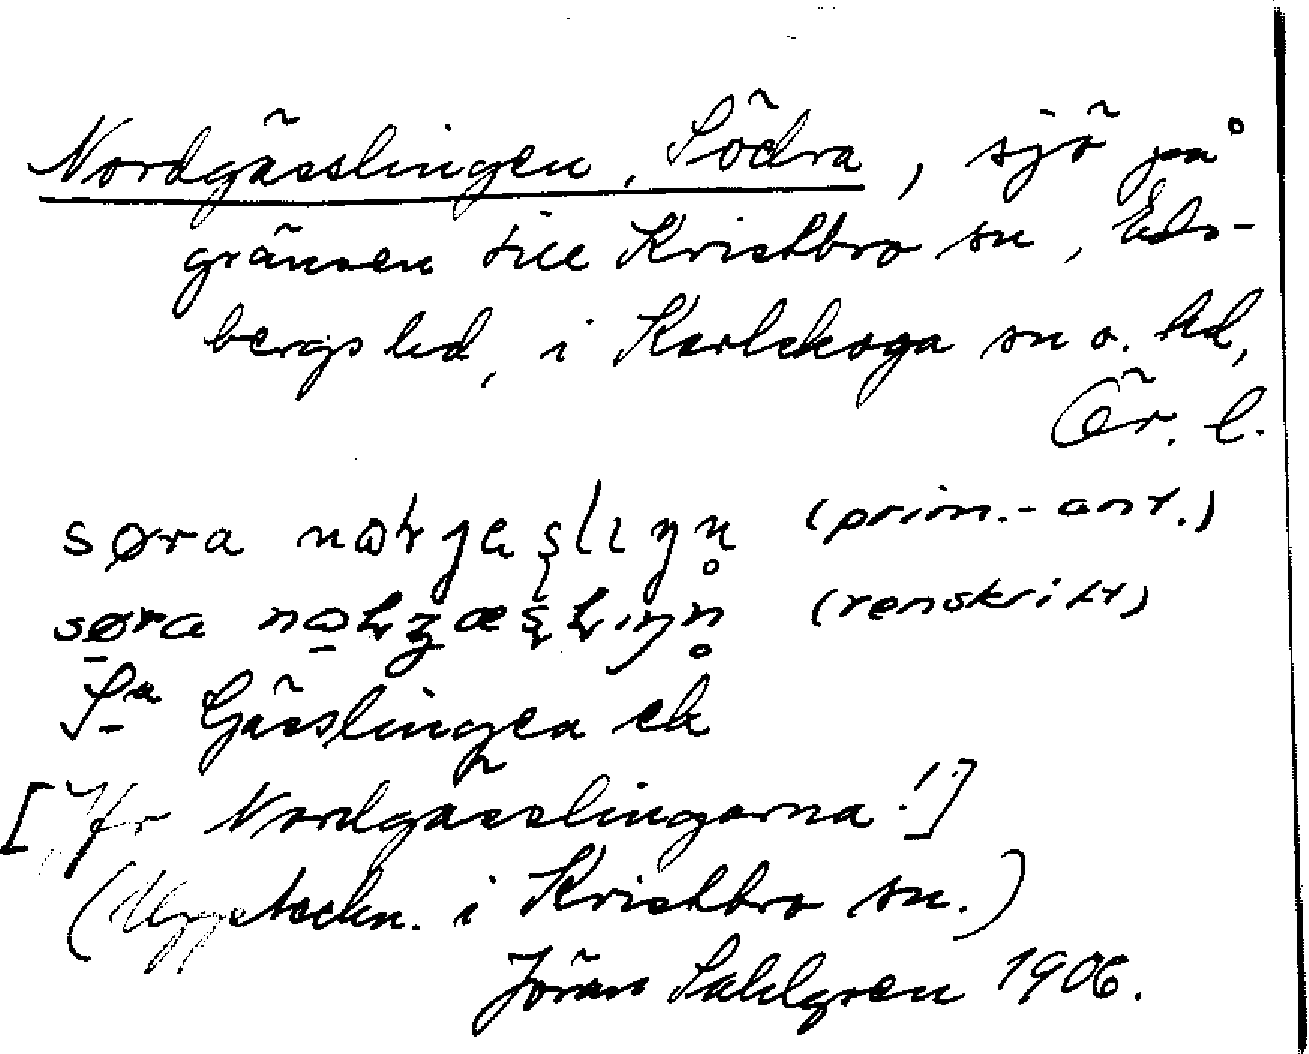 Nordgässlingen, Södra, sjö på
gränsen till Kvistbro sn, Eds-
bergs hd, i Karlskoga sn o. hd,
Ör. l.
søra (prim.-ant.)
søra (renskrift)
Sa Gässlingen ek
[Jfr Nordgässlingarna!]
(Uppteckn. i Kvistbro sn.)
Jöran Sahlgren 1906.